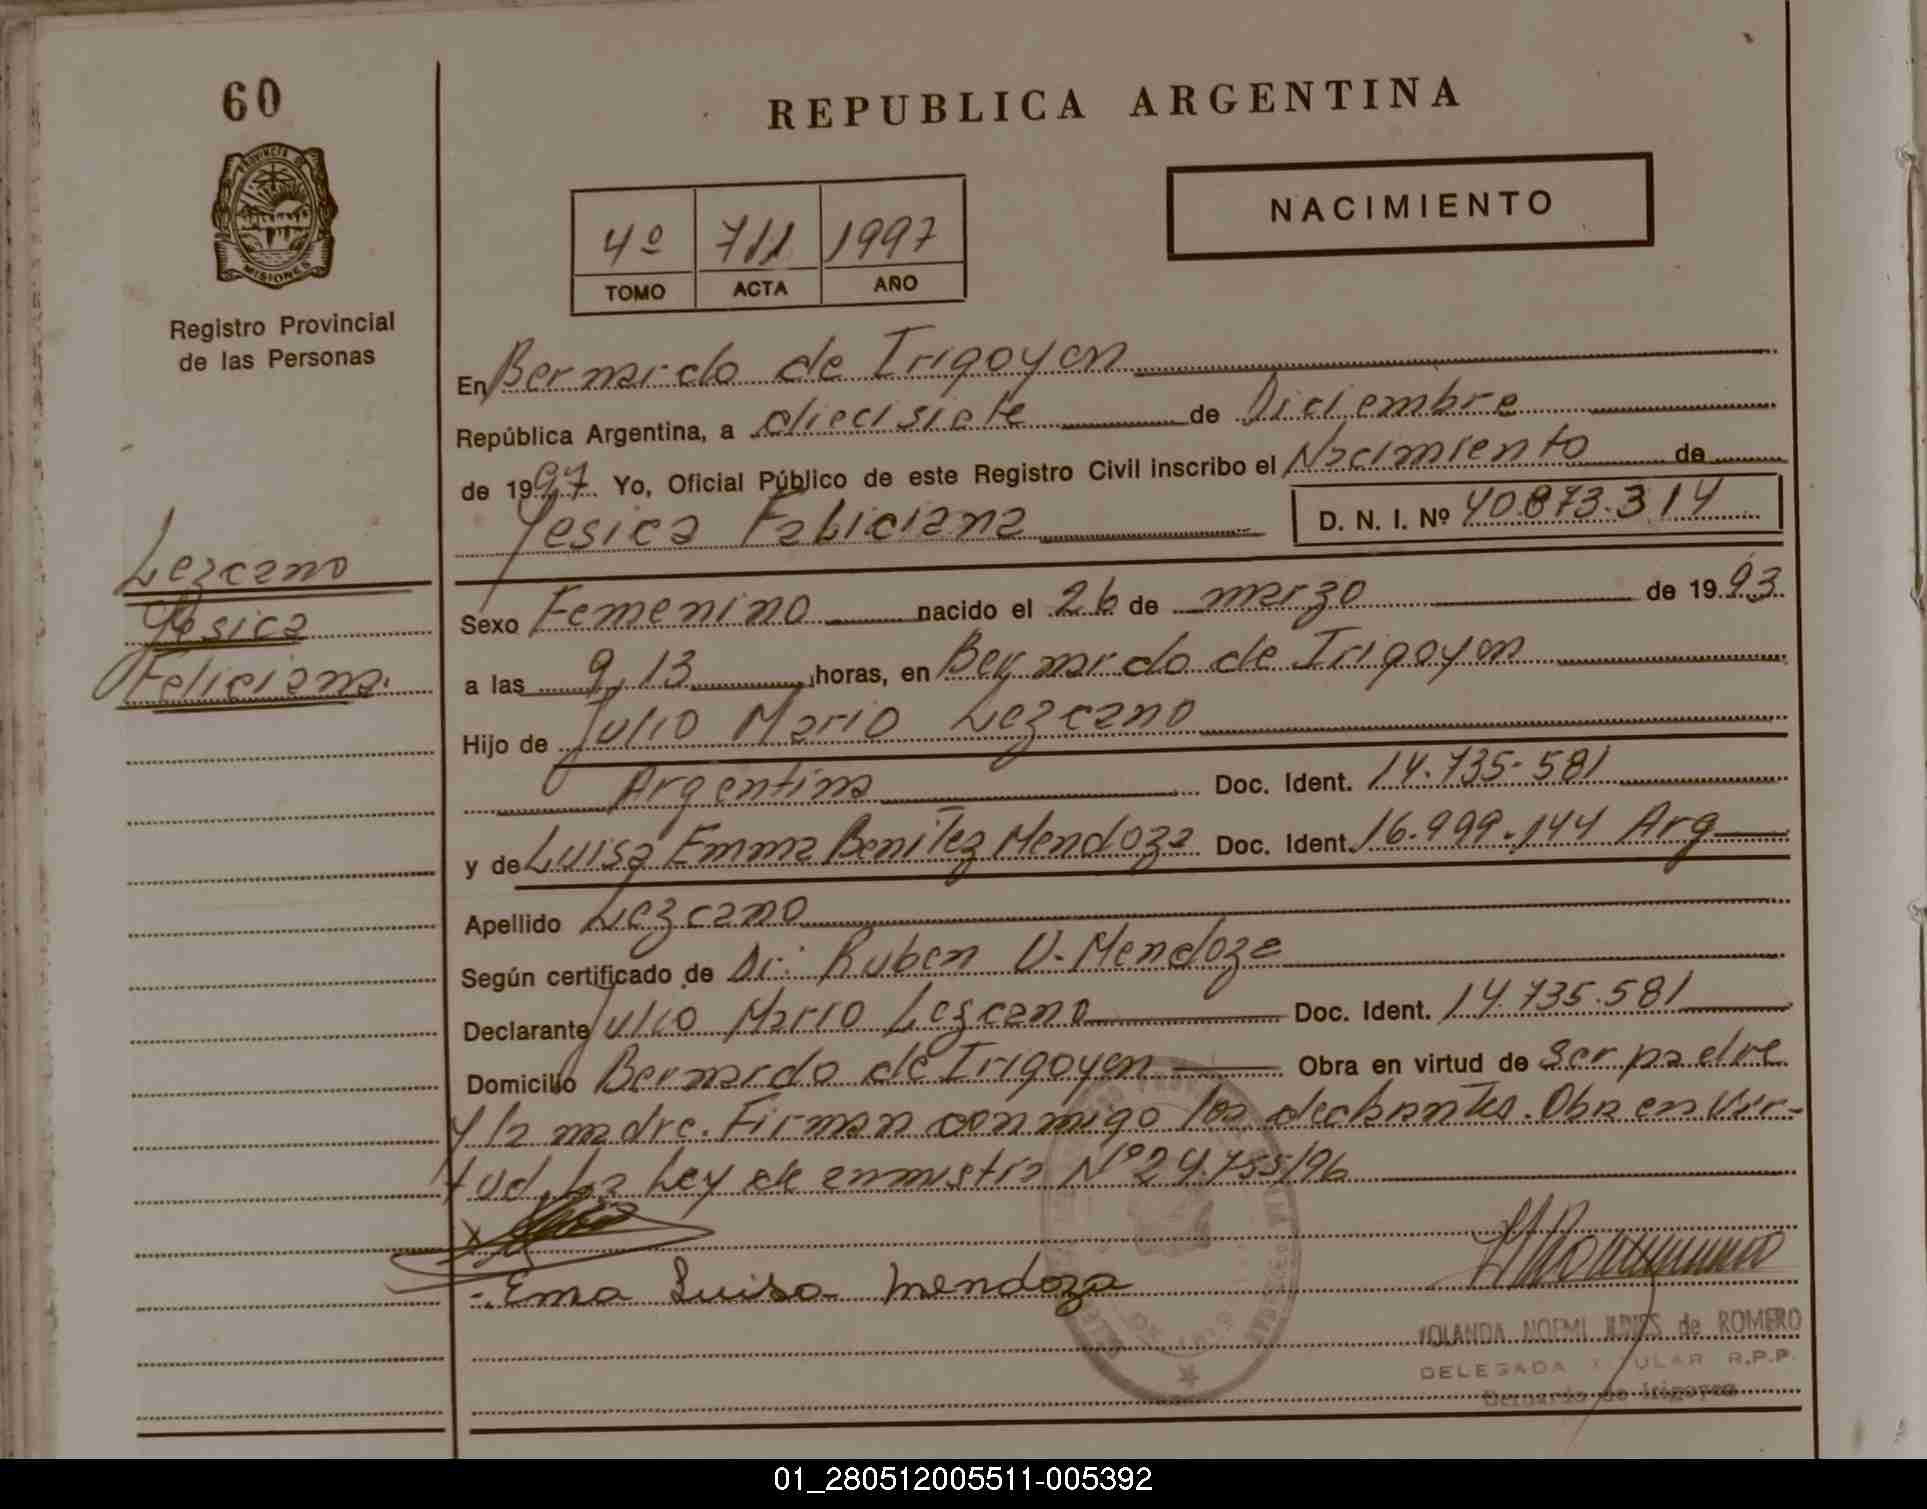 60
REPUBLICA ARGENTINA
PROVINCIA DE
MISIONES
Registro Provincial
de las Personas
4º 711 1997
TOMO ACTA AÑO
NACIMIENTO
En Bernardo de Irigoyen
República Argentina, a diecisiete de Diciembre
de 1997. Yo, Oficial Público de este Registro Civil inscribo el Nacimiento de
Yesica Faliciana D. N. I. Nº 40.873.314
Lezcano
Yesica
Feliciana.
Sexo Femenino nacido el 26 de marzo de 1993
a las 9,13 horas, en Bernardo de Irigoyen
Hijo de Julio Mario Lezcano
Argentina Doc. Ident. 14.735.581
y de Luisa Emma Benitez Mendoza Doc. Ident. 16.999.144 Arg
Apellido Lezcano
Según certificado de Dr. Ruben V. Mendoza
Declarante Julio Mario Lezcano Doc. Ident. 14.735.581
Domicilio Bernardo de Irigoyen Obra en virtud de ser padre
y la madre. Firman conmigo los declarantes. Obra en vir-
tud La Ley de amnistia Nº 24.755/96
X
Ema Luisa Mendoza
YOLANDA NOEMI de ROMERO
DELEGADA TITULAR R.P.P.
Bernardo de Irigoyen
01_280512005511-005392